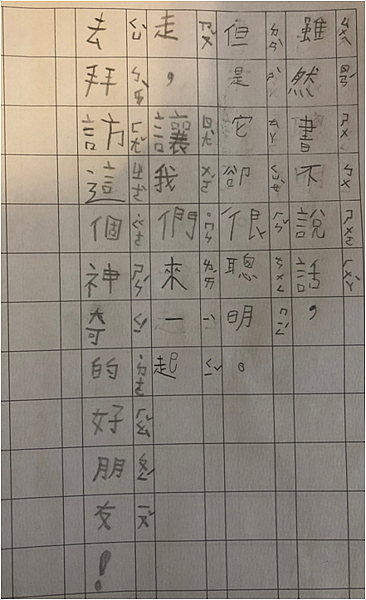 雖然書不說話，
但是它卻很聰明。
走，讓我們來一起
去拜訪這個神奇的好朋友！